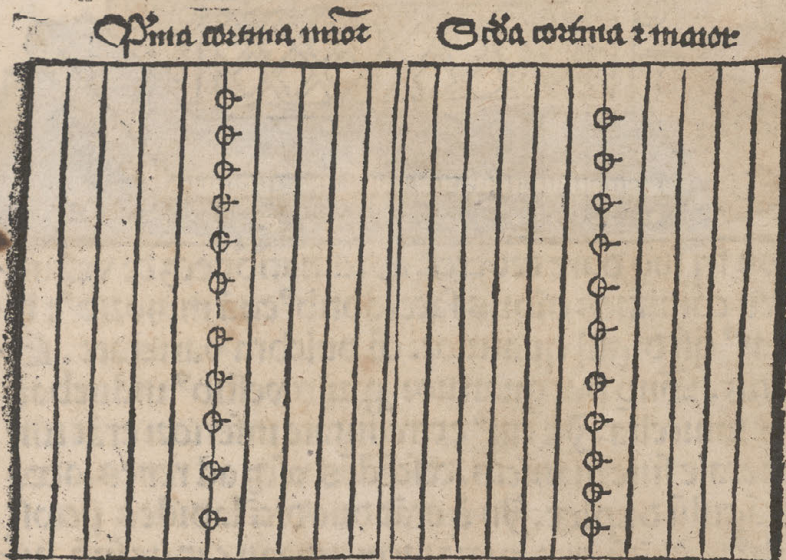 Pͥma cortina mīor
Scďa cortina ⁊ maior